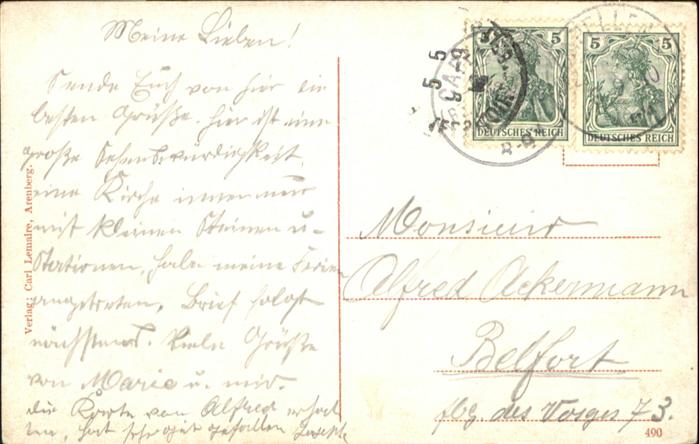 Meine Lieben!
Sende Euch von hier die
besten Grüße. hier ist eine
große Sehenswürdigkeit,
eine Kirche innen nur
mit kleinen Steinen u.
Stationen, habe meine Ferien
angetreten, Brief folgt
nächstens. Viele Grüße
von Marie u. mir.
die Karte von Alfred erhal
ten, hat sehr gut gefallen
Verlag: Carl Lemaire, Arenberg.
5 5
DEUTSCHES REICH
5 5
DEUTSCHES REICH
8-9
Monsieur
Alfred Ackermann
Belfort
fbg. des Vosges 73.
490